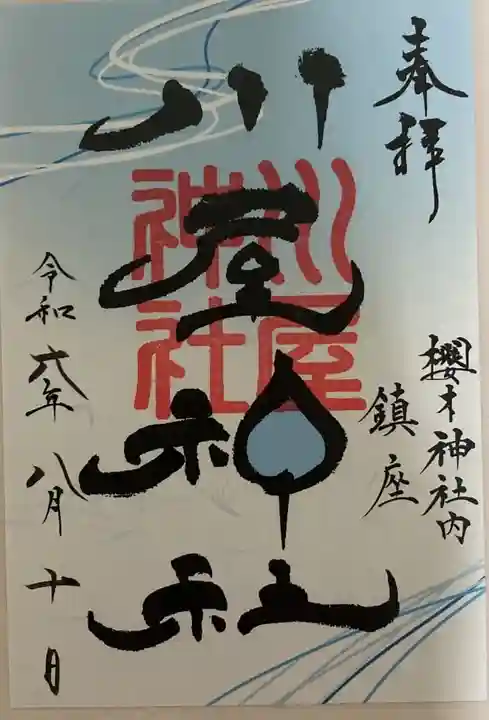 奉拝
櫻木神社内
鎮座
川屋神社
川屋
神社
令和六年八月十日